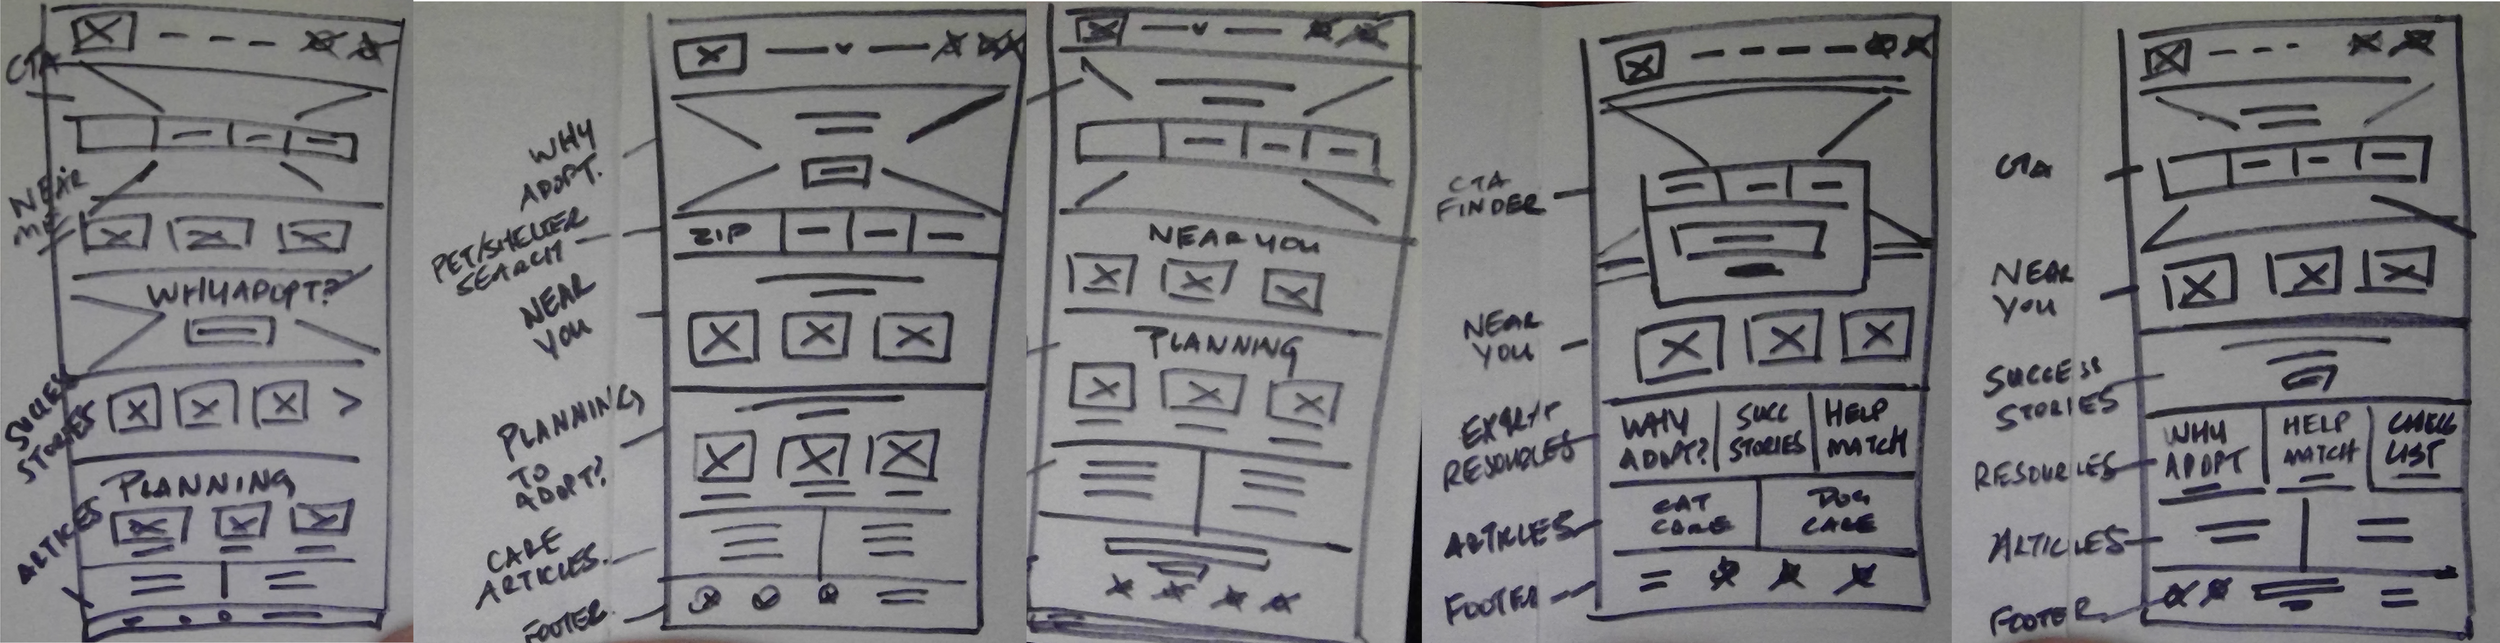 CTA
NEAR
ME
WHY ADOPT?
SUCCES
STORIES
PLANNING
ARTICLES
WHY
ADOPT.
PET/SHELTER
SEARCH
ZIP
NEAR
YOU
PLANNING
TO
ADOPT?
CARE
ARTICLES.
FOOTER
NEAR YOU
PLANNING
CTA
FINDER
NEAR
YOU
RESOURCES
WHY
ADOPT?
SUCC
STORIES
HELP
MATCH
ARTICLES
CAT
CARE
DOG
CARE
FOOTER
CTA
NEAR
YOU
SUCCESS
STORIES
RESOURCES
WHY
ADOPT
HELP
MATCH
CHECK
LIST
ARTICLES
FOOTER